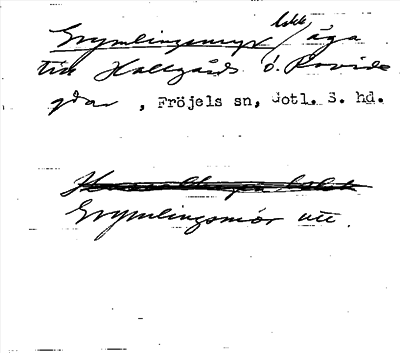 Grymlingsmyr / äga
till Hallgårds o. Rovide
gdar , Fröjels sn, Gotl. S. hd.
Grymlingsmör utt.